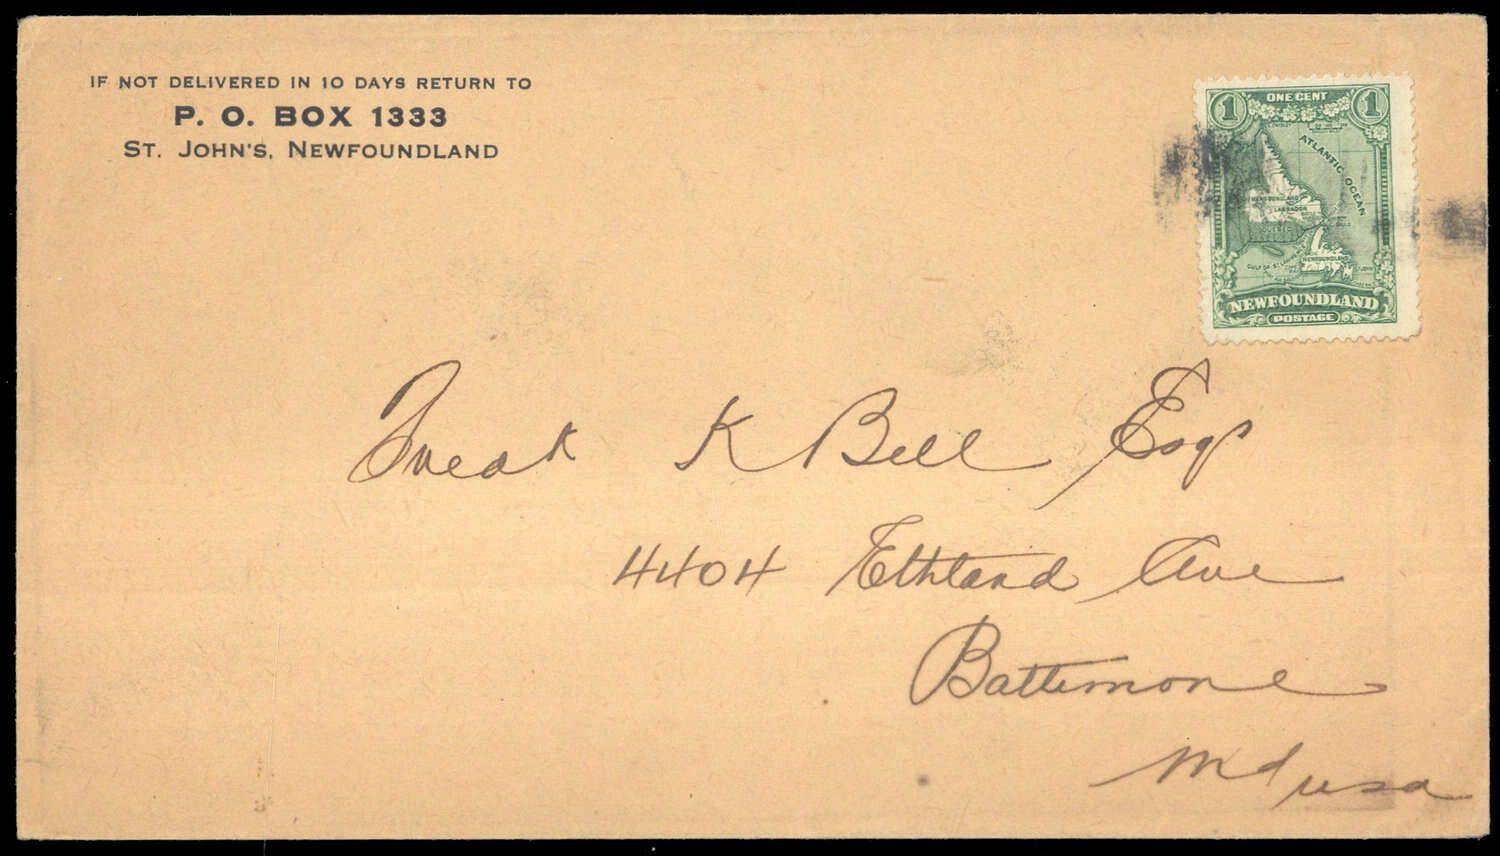 IF NOT DELIVERED IN 10 DAYS RETURN TO
P. O. BOX 1333
ST. JOHN'S, NEWFOUNDLAND
1 ONE CENT 1
ATLANTIC OCEAN
NEWFOUNDLAND
LABRADOR
NEWFOUNDLAND
NEWFOUNDLAND
POSTAGE
K Bell Esq
4404 Ave
Baltimore
Md usa